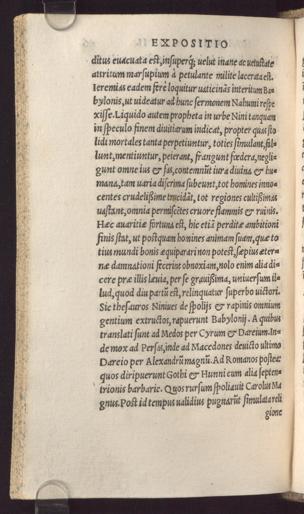 EXPOSITIO
ditus euacuata est, insuperq́; uelut inane ac uetustate
attritum marsupium à petulante milite lacerata est.
Ieremias eadem ferè loquitur uaticinās interitum Ba-
bylonis, ut uideatur ad hunc sermonem Nahumi respe
xisse. Liquido autem propheta in urbe Nini tanquam
in speculo finem diuitiarum indicat, propter quas sto
lidi mortales tanta perpetiuntur, toties simulant, fal-
lunt, mentiuntur, peierant, frangunt fœdera, negli-
gunt omne ius & fas, contemnūt iura diuina & hu-
mana, tam uaria discrimina subeunt, tot homines inno-
centes crudelissime trucidāt, tot regiones cultißimas
uastant, omnia permiscētes cruore flammis & ruinis.
Hæc auaritiæ fortuna est, hic etiā perditæ ambitioni
finis stat, ut postquam homines animam suam, quæ to
tius mundi bonis æquiparari non potest, sæpius æter-
næ damnationi fecerint obnoxiam, nolo enim alia di-
cere præ illis leuia, per se grauißima, uniuersum il-
lud, quod diu partū est, relinquatur superbo uictori.
Sic thesauros Niniues de spolijs & rapinis omnium
gentium extructos, rapuerunt Babylonij. A quibus
translati sunt ad Medos per Cyrum & Dareium. In-
de mox ad Persas, inde ad Macedones deuicto ultimo
Dareio per Alexandrū magnū. Ad Romanos posteà
quos diripuerunt Gothi & Hunni cum alia septen-
trionis barbarie. Quos rursum spoliauit Carolus Ma
gnus. Post id tempus ualidius pugnarūt simulata reli
gione